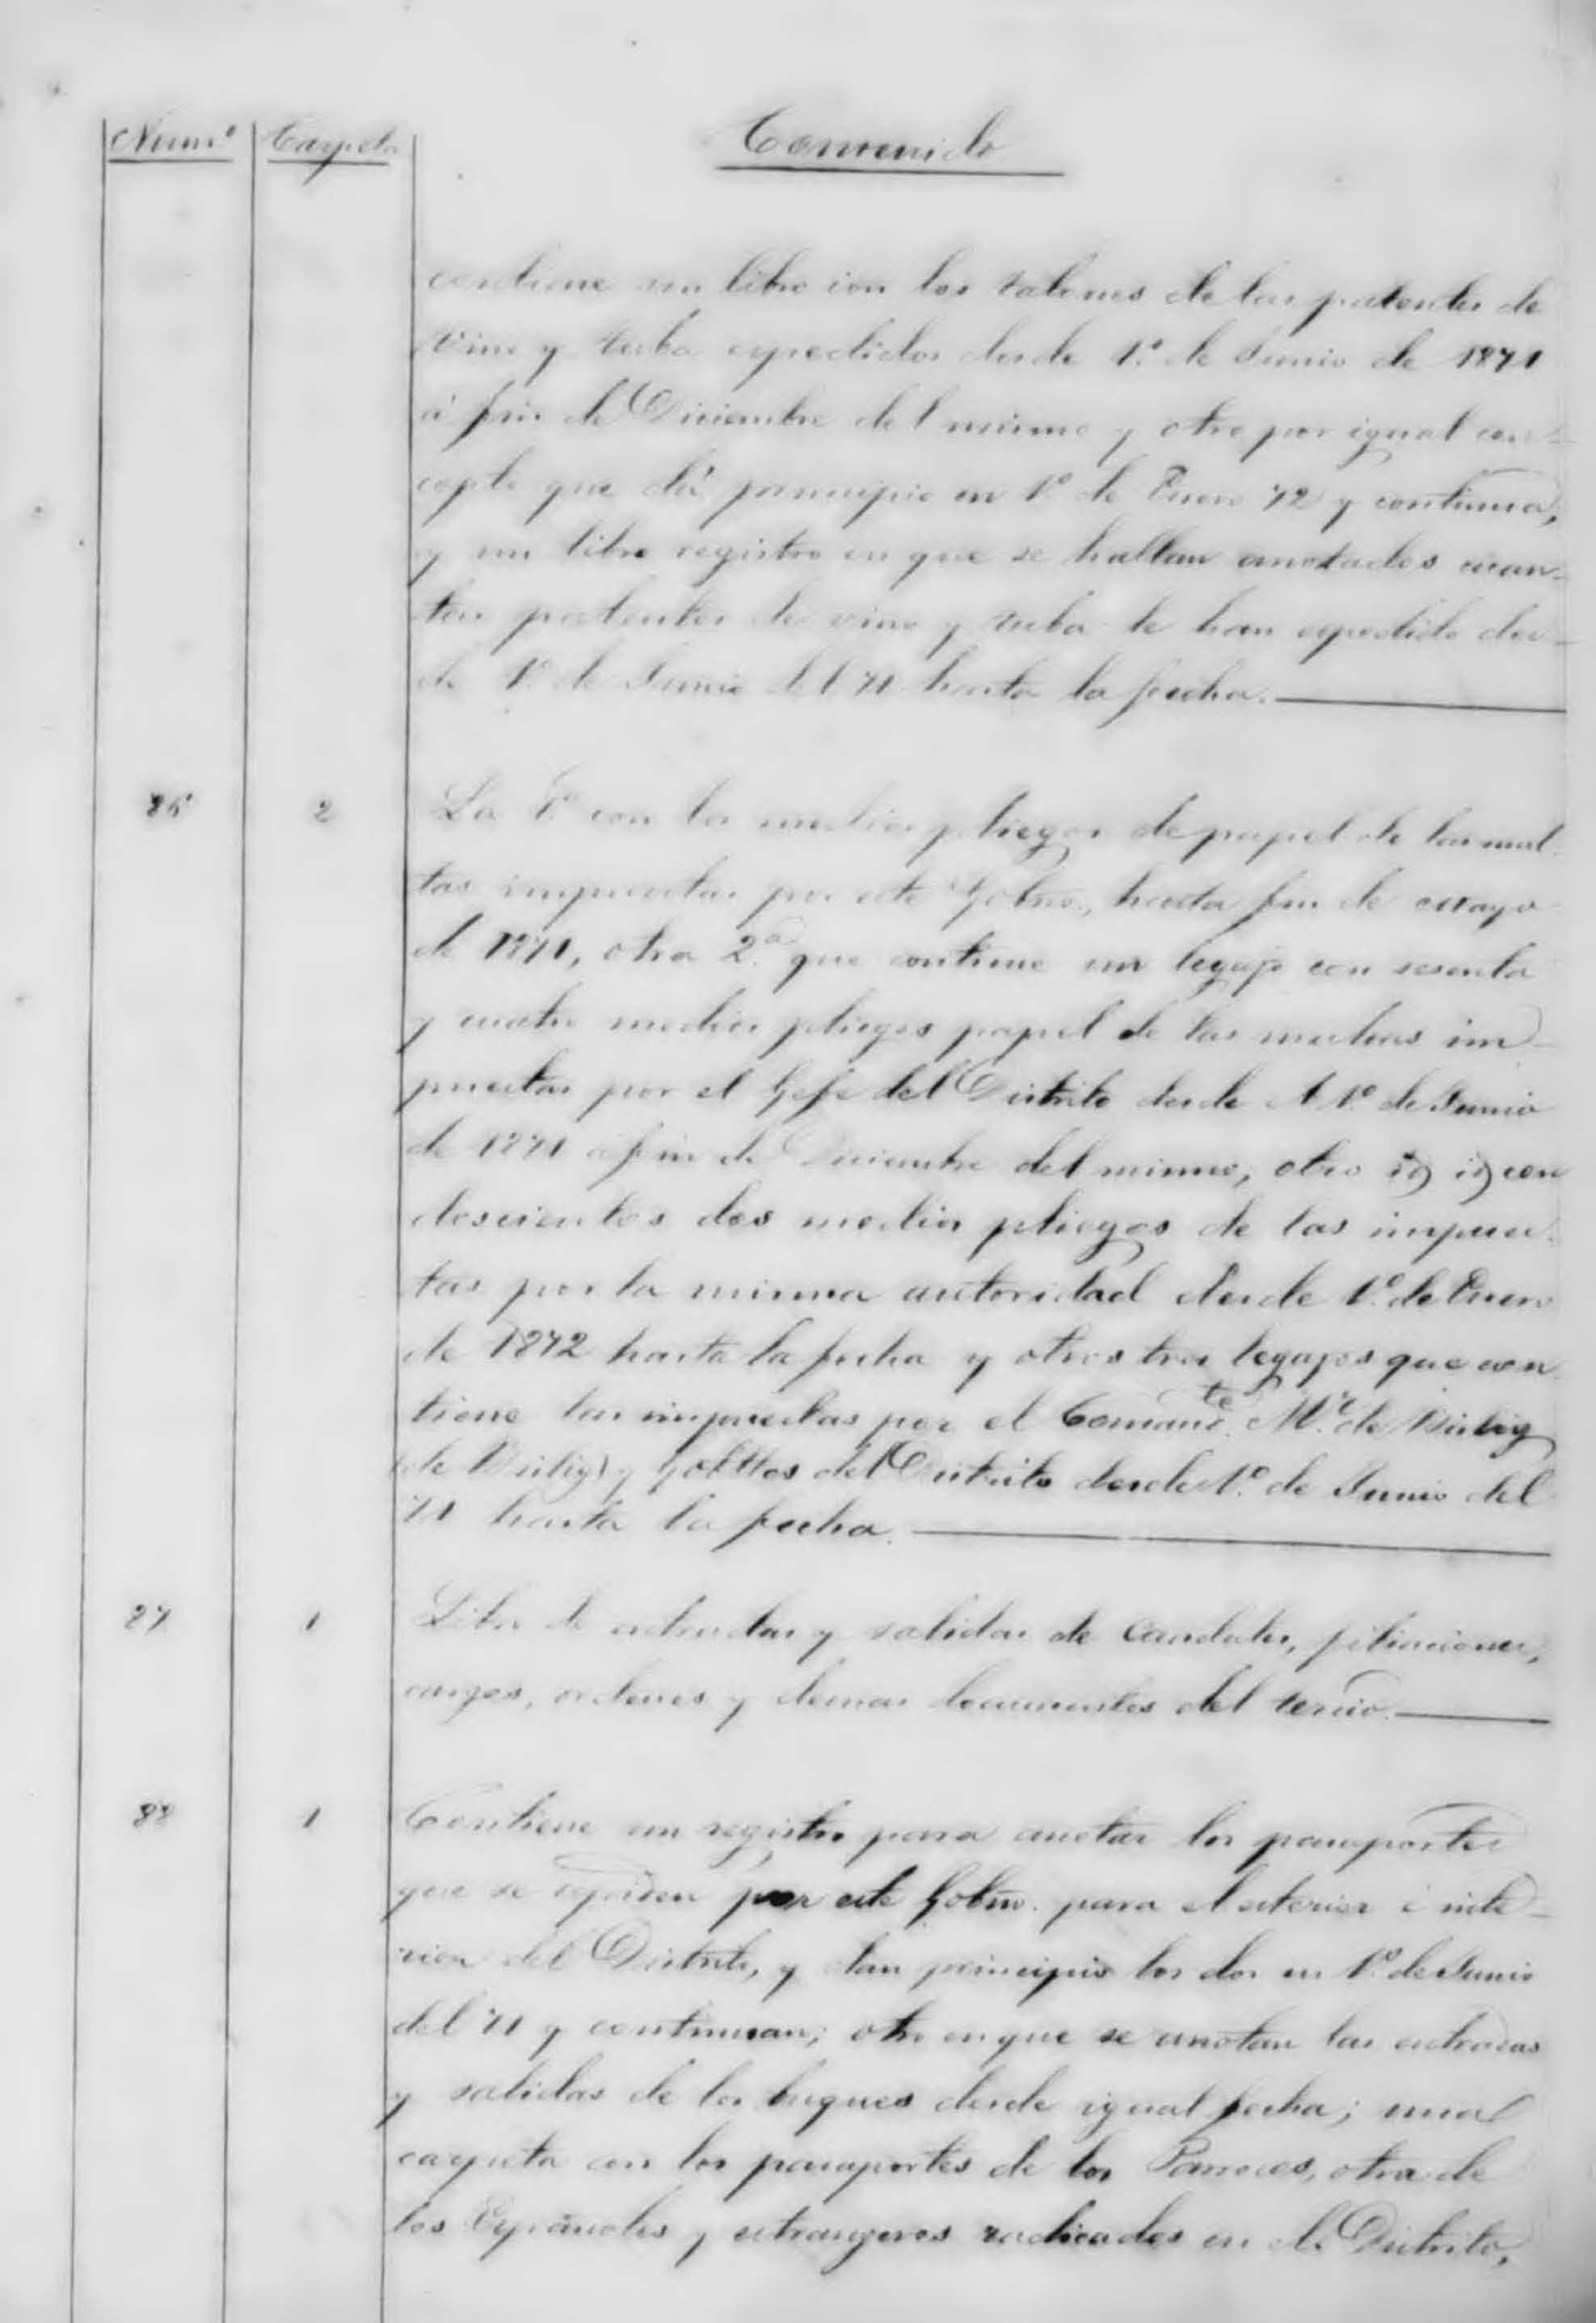 Num.º Carpeta Contenido
contiene un libro con los talones de las patentes de
vino y tuba expedidos desde 1.º de Junio de 1871
á fin de Diciembre del mismo y otro por igual con-
cepto que dá principio en 1.º de Enero 72 y continua,
y un libro registro en que se hallan anotados cuan-
tas patentes de vino y tuba se han expedido des-
de 1.º de Junio del 71 hasta la fecha.
86 2 La 1.ª con los medios pliegos de papel de las mul-
tas impuestas por este Gobno., hasta fin de Mayo
de 1871, otra 2.ª que contiene un legajo con sesenta
y cuatro medios pliegos papel de las multas im-
puestas por el Gefe del Distrito desde el 1.º de Junio
de 1871 á fin de Diciembre del mismo, otro id id con
doscientos dos medios pliegos de las impues-
tas por la misma autoridad desde 1.º de Enero
de 1872 hasta la fecha y otros tres legajos que con
tiene las impuestas por el Comante. M.r de Bislig
(de Bislig) y Gobllos del Distrito desde 1.º de Junio del
71 hasta la fecha.
87 1 Libro de entradas y salidas de caudales, filiaciones,
cargos, ordenes y demas documentos del tercio.
88 1 Contiene un registro para anotar los pasaportes
que se expiden por este Gobno. para el esterior é inte-
rior del Distrito, y dan principio los dos en 1.º de Junio
del 71 y continuan; otro en que se anotan las entradas
y salidas de los buques desde igual fecha; una
carpeta con los pasaportes de los Parrocos, otra de
los Españoles y estrangeros radicados en el Distrito,